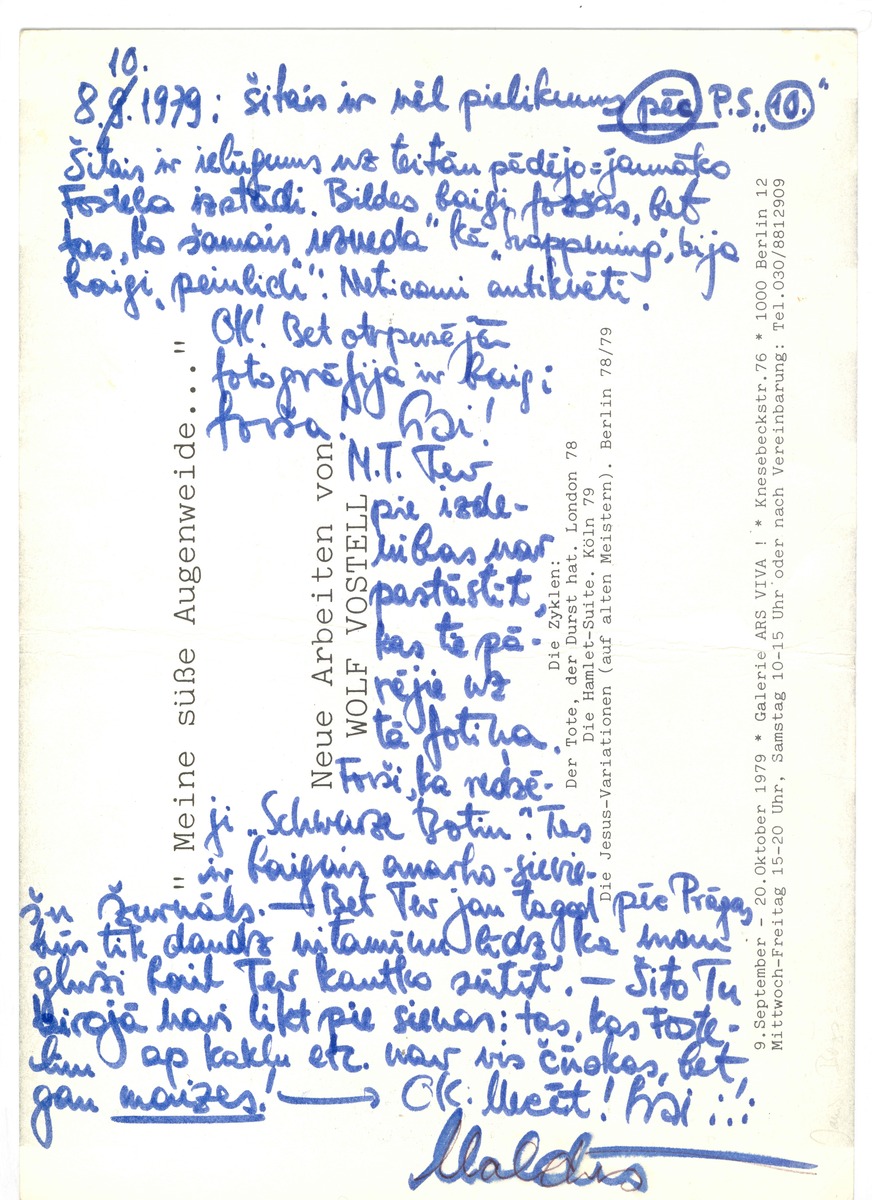 10.
8.9.1979: šitais ir vēl pielikums pēc P.S. „10."
Šitais ir ielūgums uz teitān pēdējo=jaunāko
Fostela izstādi. Bildes baigi foršas, bet
tas, ko šamais „uzveda" kā „happening", bija
baigi „peinlich": Neticami antikvēti.
OK! Bet otrpusējā
fotogrāfija ir baigi
forša! Čai!
N.T. Tev
pie izde-
vības var
pastāstīt,
kas tie pā-
rējie uz
tā fotiņa.
Forši, ka redzē-
ji „Schwarze Botin". Tas
ir baigais anarho-sievie-
šu žurnāls. — Bet Tev jau tagad pēc Prāgas
būs tik daudz vitamīnu līdz, ka man
gluži bail Tev kautko sūtīt. — Šito Tu
vari likt pie sienas: tas, kas Foste-
lim ap kaklu etc. nav vis čūskas, bet
gan maizes! → OK. Mecēt! Čai
Maldis
" Meine süße Augenweide..."
Neue Arbeiten von
WOLF VOSTELL
Die Zyklen:
Der Tote, der Durst hat. London 78
Die Hamlet-Suite. Köln 79
Die Jesus-Variationen (auf alten Meistern). Berlin 78/79
9.September - 20.Oktober 1979 * Galerie ARS VIVA ! * Knesebeckstr.76 * 1000 Berlin 12
Mittwoch-Freitag 15-20 Uhr, Samstag 10-15 Uhr oder nach Vereinbarung: Tel.030/8812909